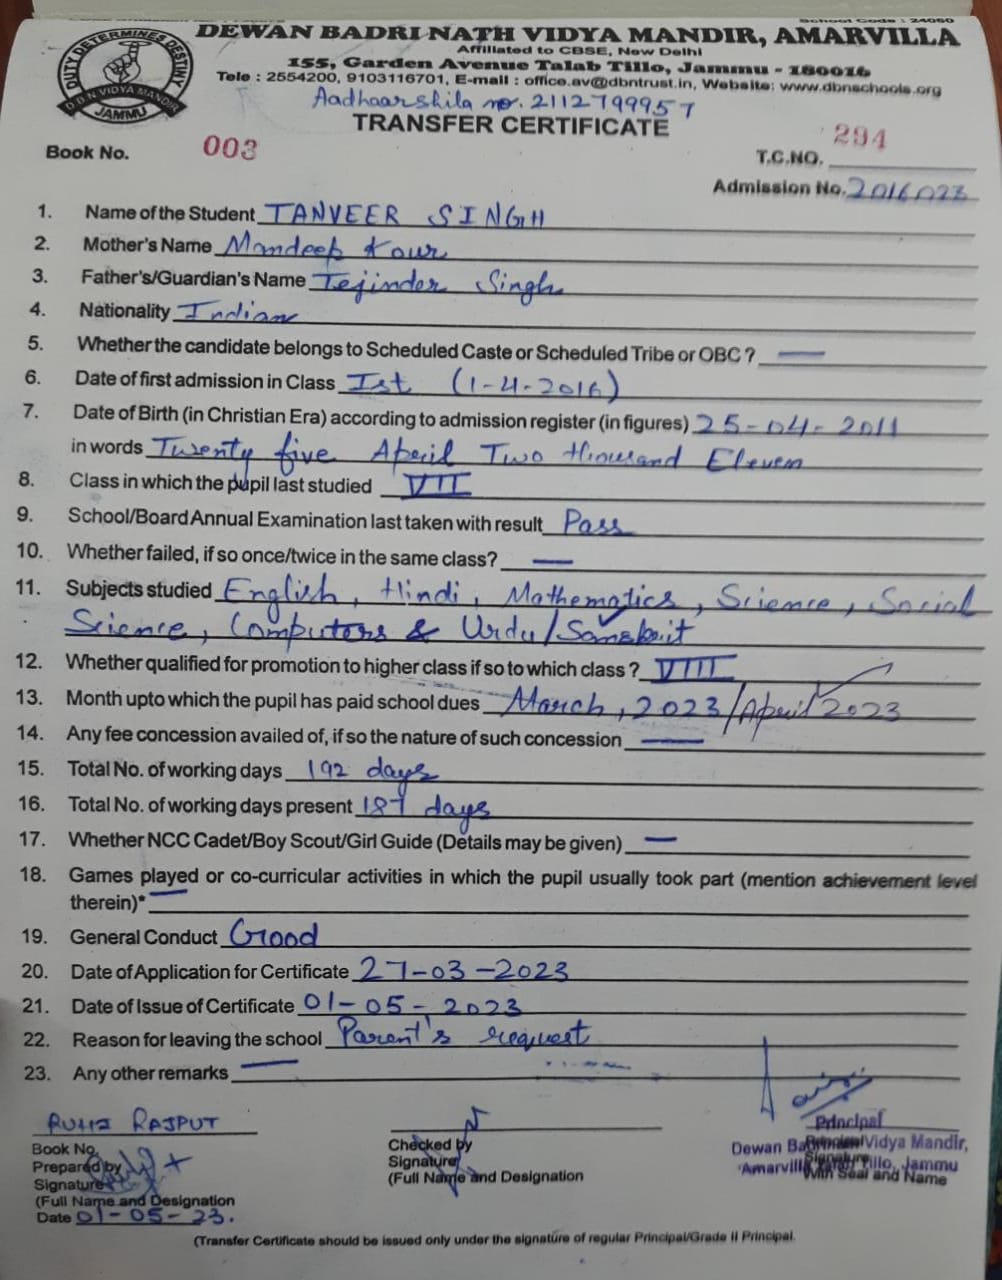 School Code : 24060
DUTY DETERMINES DESTINY
D.B.N VIDYA MANDIR
JAMMU
DEWAN BADRI NATH VIDYA MANDIR, AMARVILLA
Affiliated to CBSE, New Delhi
155, Garden Avenue Talab Tillo, Jammu - 180016
Tele : 2554200, 9103116701, E-mail : office.av@dbntrust.in, Website: www.dbnschools.org
Aadhaarshila no. 2112799957
TRANSFER CERTIFICATE
Book No. 003
T.C.NO. 294
Admission No. 2016023
1. Name of the Student TANVEER SINGH
2. Mother's Name Mandeep Kour
3. Father's/Guardian's Name Tejinder Singh
4. Nationality Indian
5. Whether the candidate belongs to Scheduled Caste or Scheduled Tribe or OBC ? —
6. Date of first admission in Class Ist (1-4-2016)
7. Date of Birth (in Christian Era) according to admission register (in figures) 25-04-2011
in words Twenty five April Two thousand Eleven
8. Class in which the pupil last studied VII
9. School/Board Annual Examination last taken with result Pass
10. Whether failed, if so once/twice in the same class? —
11. Subjects studied English, Hindi, Mathematics, Science, Social
Science, Computers & Urdu/Sanskrit
12. Whether qualified for promotion to higher class if so to which class ? VIII
13. Month upto which the pupil has paid school dues March, 2023/April 2023
14. Any fee concession availed of, if so the nature of such concession —
15. Total No. of working days 192 days
16. Total No. of working days present 187 days
17. Whether NCC Cadet/Boy Scout/Girl Guide (Details may be given) —
18. Games played or co-curricular activities in which the pupil usually took part (mention achievement level
therein)* —
19. General Conduct Good
20. Date of Application for Certificate 27-03-2023
21. Date of Issue of Certificate 01-05-2023
22. Reason for leaving the school Parent's request
23. Any other remarks —
RAJPUT
Book No.
Prepared by
Signature
(Full Name and Designation
Date 01-05-23.
Checked by
Signature
(Full Name and Designation
Principal
Dewan Vidya Mandir,
Signature
Tillo, Jammu
With Seal and Name
(Transfer Certificate should be issued only under the signature of regular Principal/Grade II Principal.